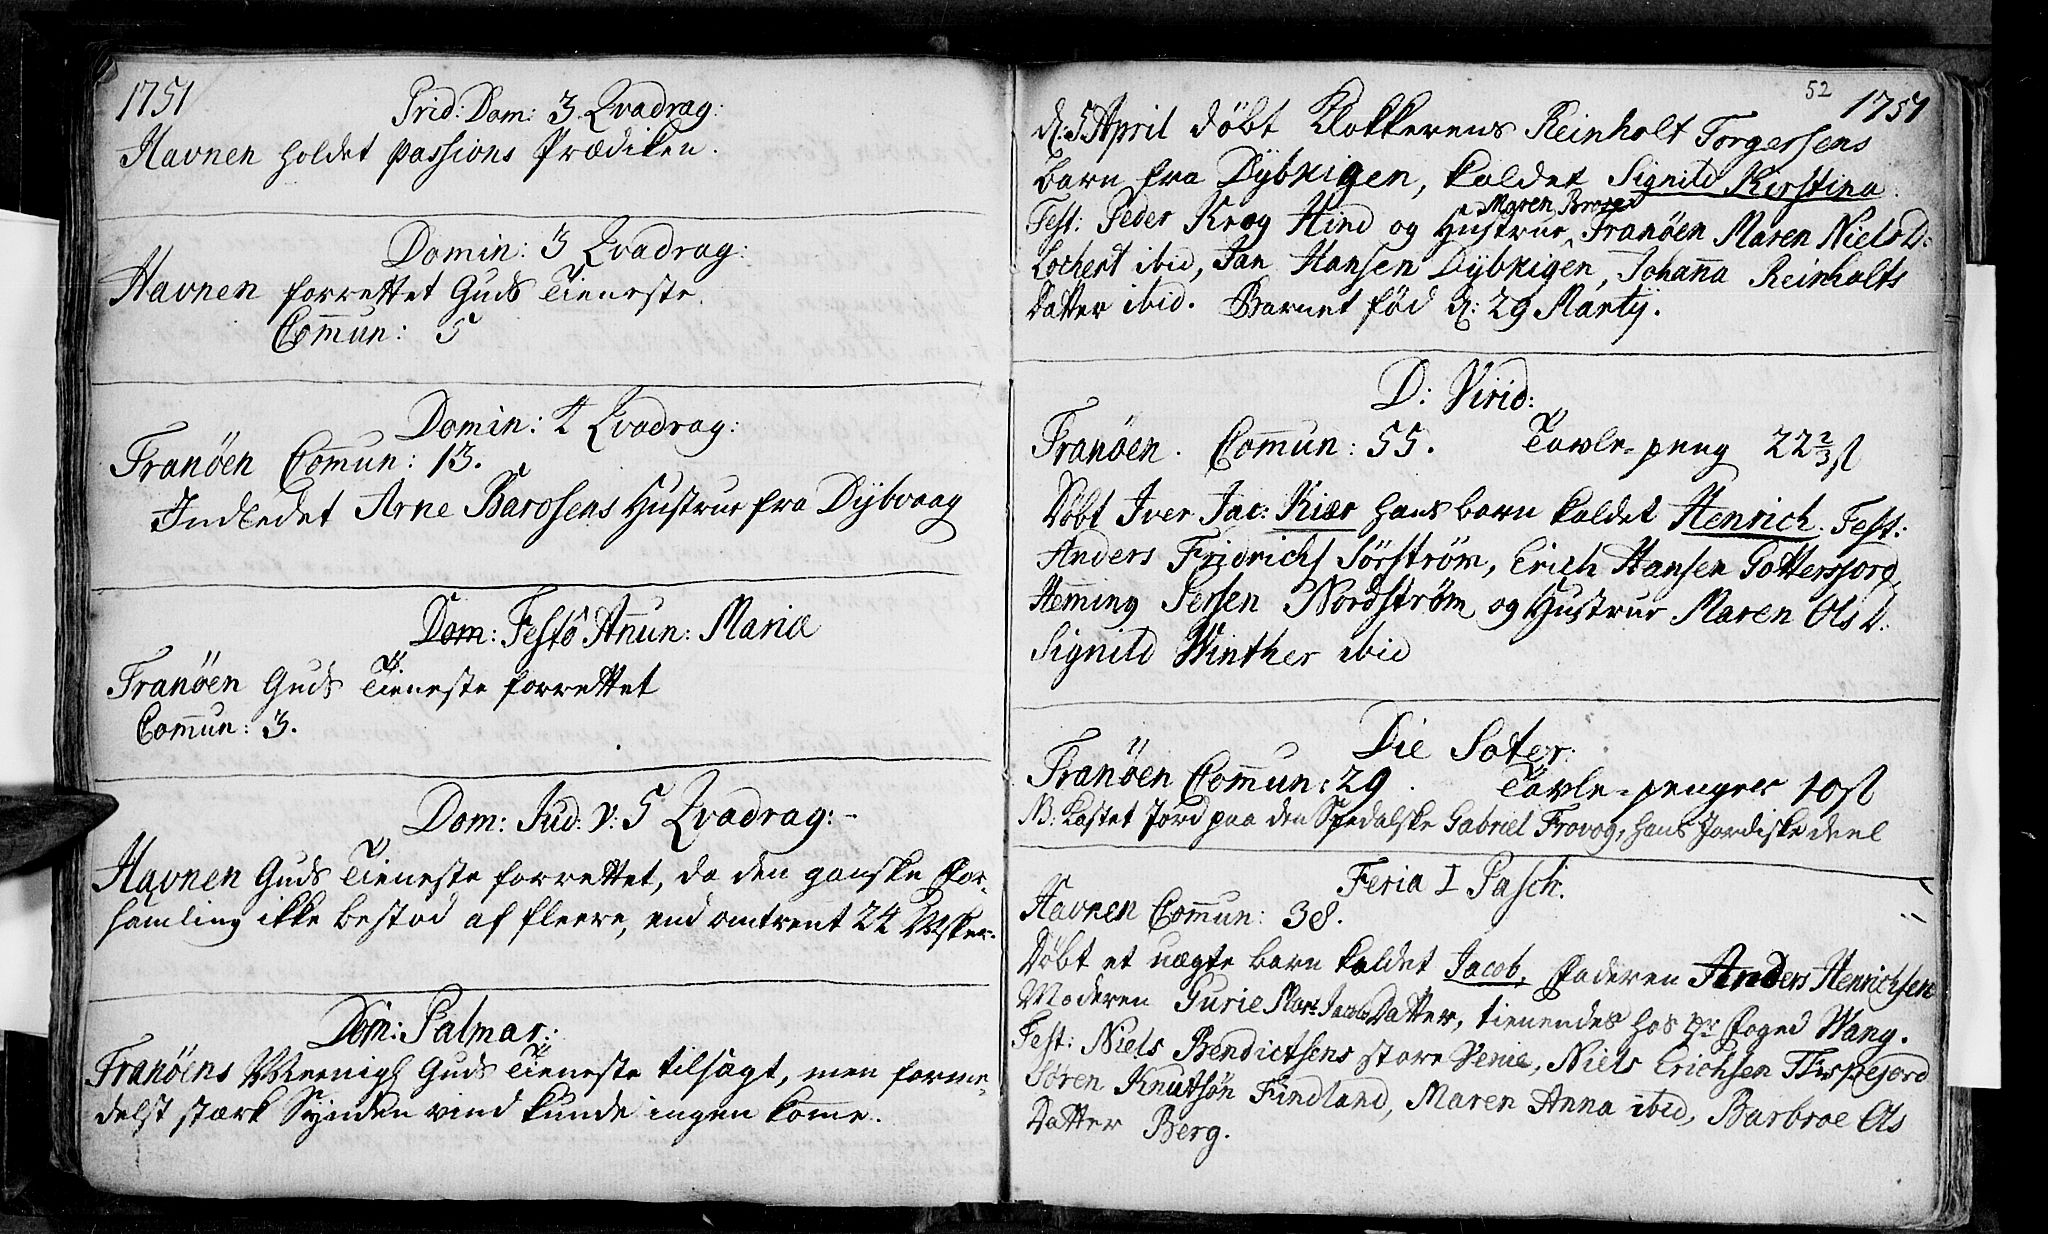 1751
Prid: Dom: 3 Qvadrag:
Havnen holdet passions Prædiken.
Domin: 3 Qvadrag:
Havnen forrettet Guds Tieneste.
Com̄un: 5
Domin: 4 Qvadrag:
Tranöen Com̄un: 13.
Indledet Arne Barosens Hustrue fra Dybvaag
Dom: Festo Anun: Mariæ
Tranöen Guds Tieneste forrettet
Com̄un: 3.
Dom: Jud. v: 5 Qvadrag:-
Havnen Guds Tieneste forrettet, da den ganske For-
samling ikke bestod af fleere, end omtrent 24 Msker.
Dom: Palmar:
Tranöens Meenigh Guds Tieneste tilsagt, men forme-
delst stærk Synden vind kunde ingen kom̄e.
52
1751
d: 5 April döbt Klokkerens Reinholt Torgersens
barn fra Dybkigen, kaldet Signild Kirstina.
Test: Peder Krog Hind og Hustrue Maren Tranöen Maren Niels D:
Lochert ibid, Jan Hansen Dybkigen, Johan̄a Reinholts
Datter ibid. Barnet föd d: 29 Martij.
D: Virid:
Tranöen. Com̄un: 55. Tavle-peng 22 2/3 ſl
Döbt Iver Jac: Kiær hans barn kaldet Henrich. Test:
Anders Fridrichs Sörström, Erich Hansen Gottersfjord,
Hem̄ing Persen Nordström og Hustrue Maren Ols D.
Signild Winther ibid
Die Sater:
Tranöen Com̄un: 29. Tavle-penger 10 ſl
NB: Kastet Jord paa den Spedalske Gabriel Frovog, hans Jordiske deel
Feria I Pasch.
Havnen Com̄un: 38.
Döbt et uægte barn kaldet Jacob, Faderen Anders Henrichsen
Moderen Gurie Jacobs Datter, tienendes hos Hr Foged Wang.
Test: Niels Bendictsens store Venie, Niels Erichsen
Sören Knutsön Fundland, Maren Anna ibid, Barbroe Ols
Datter Berg.